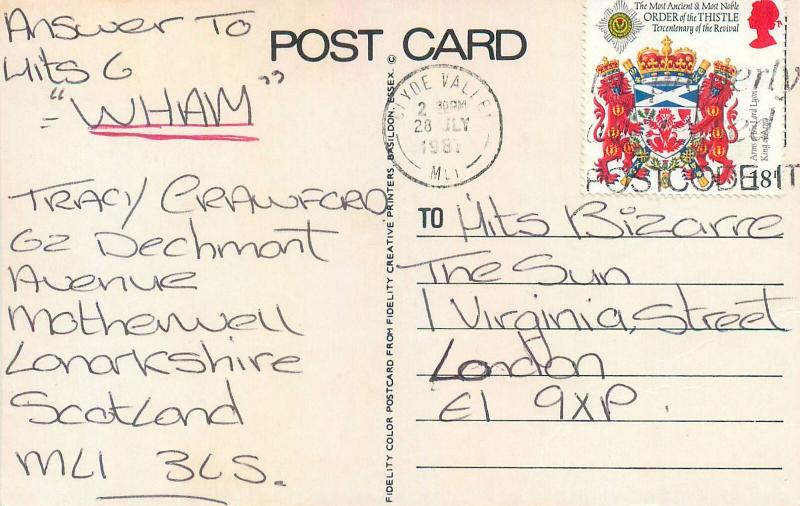 Answer To
Hits 6
= "WHAM"
TRACY CRAWFORD
62 Dechmont
Avenue
Motherwell
Lanarkshire
Scotland
ML1 3LS.
POST CARD
FIDELITY COLOR POSTCARD FROM FIDELITY CREATIVE PRINTERS, BASILDON, ESSEX. ©
CLYDE VALLEY
2 30PM
28 JLY
1987
ML1
The Most Ancient & Most Noble
ORDER of the THISTLE
Tercentenary of the Revival
Arms of the Lord Lyon
King of Arms
18P
POSTCODE IT
TO Hits Bizarre
The Sun
1 Virginia, Street
London
E1 9XP.